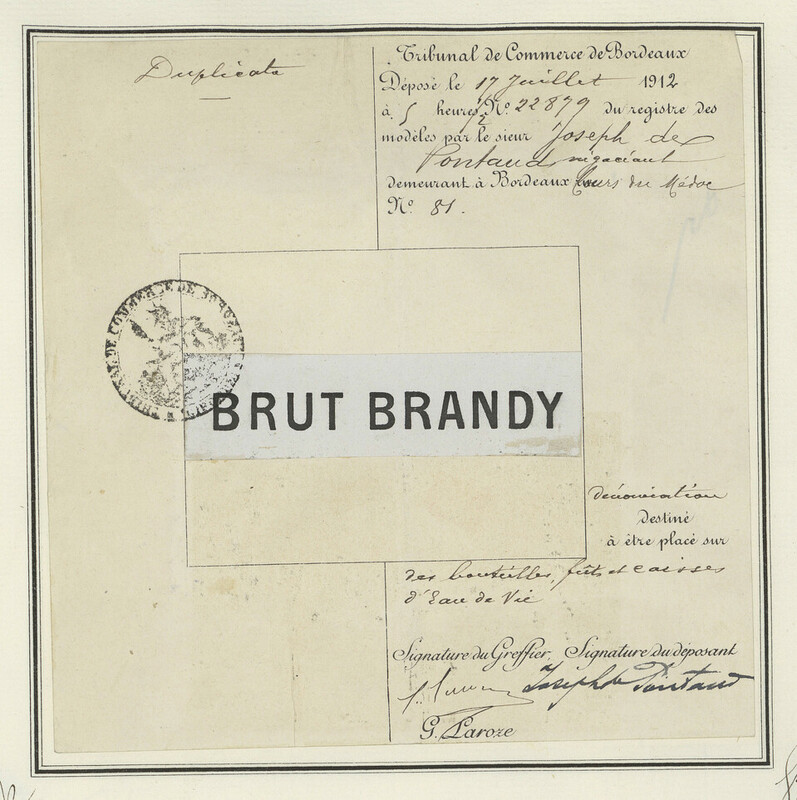 Duplicata
Tribunal de Commerce de Bordeaux
Déposé le 17 Juillet 1912
à 5 heures 1/2 N.° 22879 du registre des
modèles par le sieur Joseph de
Pontaud négociant
demeurant à Bordeaux Cours du Médoc
N.° 81.
TRIBUNAL DE COMMERCE DE BORDEAUX
BRUT BRANDY
dénomination
destiné
à être placé sur
des bouteilles, fûts et caisses
d'Eau de Vie
Signature du Greffier, Signature du déposant
Joseph de Pontaud
G. Laroze